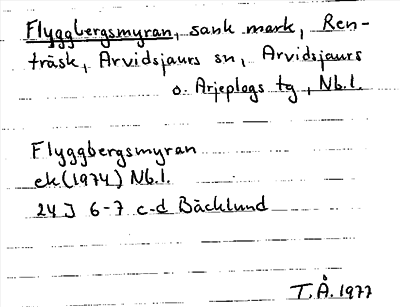 Flyggbergsmyran, sank mark, Ren-
träsk, Arvidsjaurs sn, Arvidsjaurs
o. Arjeplogs tg, Nb.l.
Flyggbergsmyran
ek(1974) Nb.l.
24J 6-7 c-d Bäcklund
T.Å. 1977